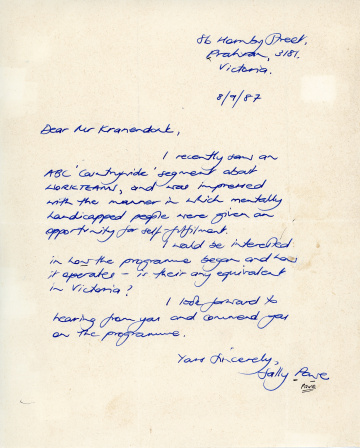 86 Hornby Street,
Prahran, 3181.
Victoria.
8/9/87
Dear Mr Kranendonk,
I recently saw an
ABC 'Countrywide' segment about
WORKTEAM, and was impressed
with the manner in which mentally
handicapped people were given an
opportunity for self fulfilment.
I would be interested
in how the programme began and how
it operates – is their any equivalent
in Victoria?
I look forward to
hearing from you and commend you
on the programme.
Yours Sincerely,
Sally